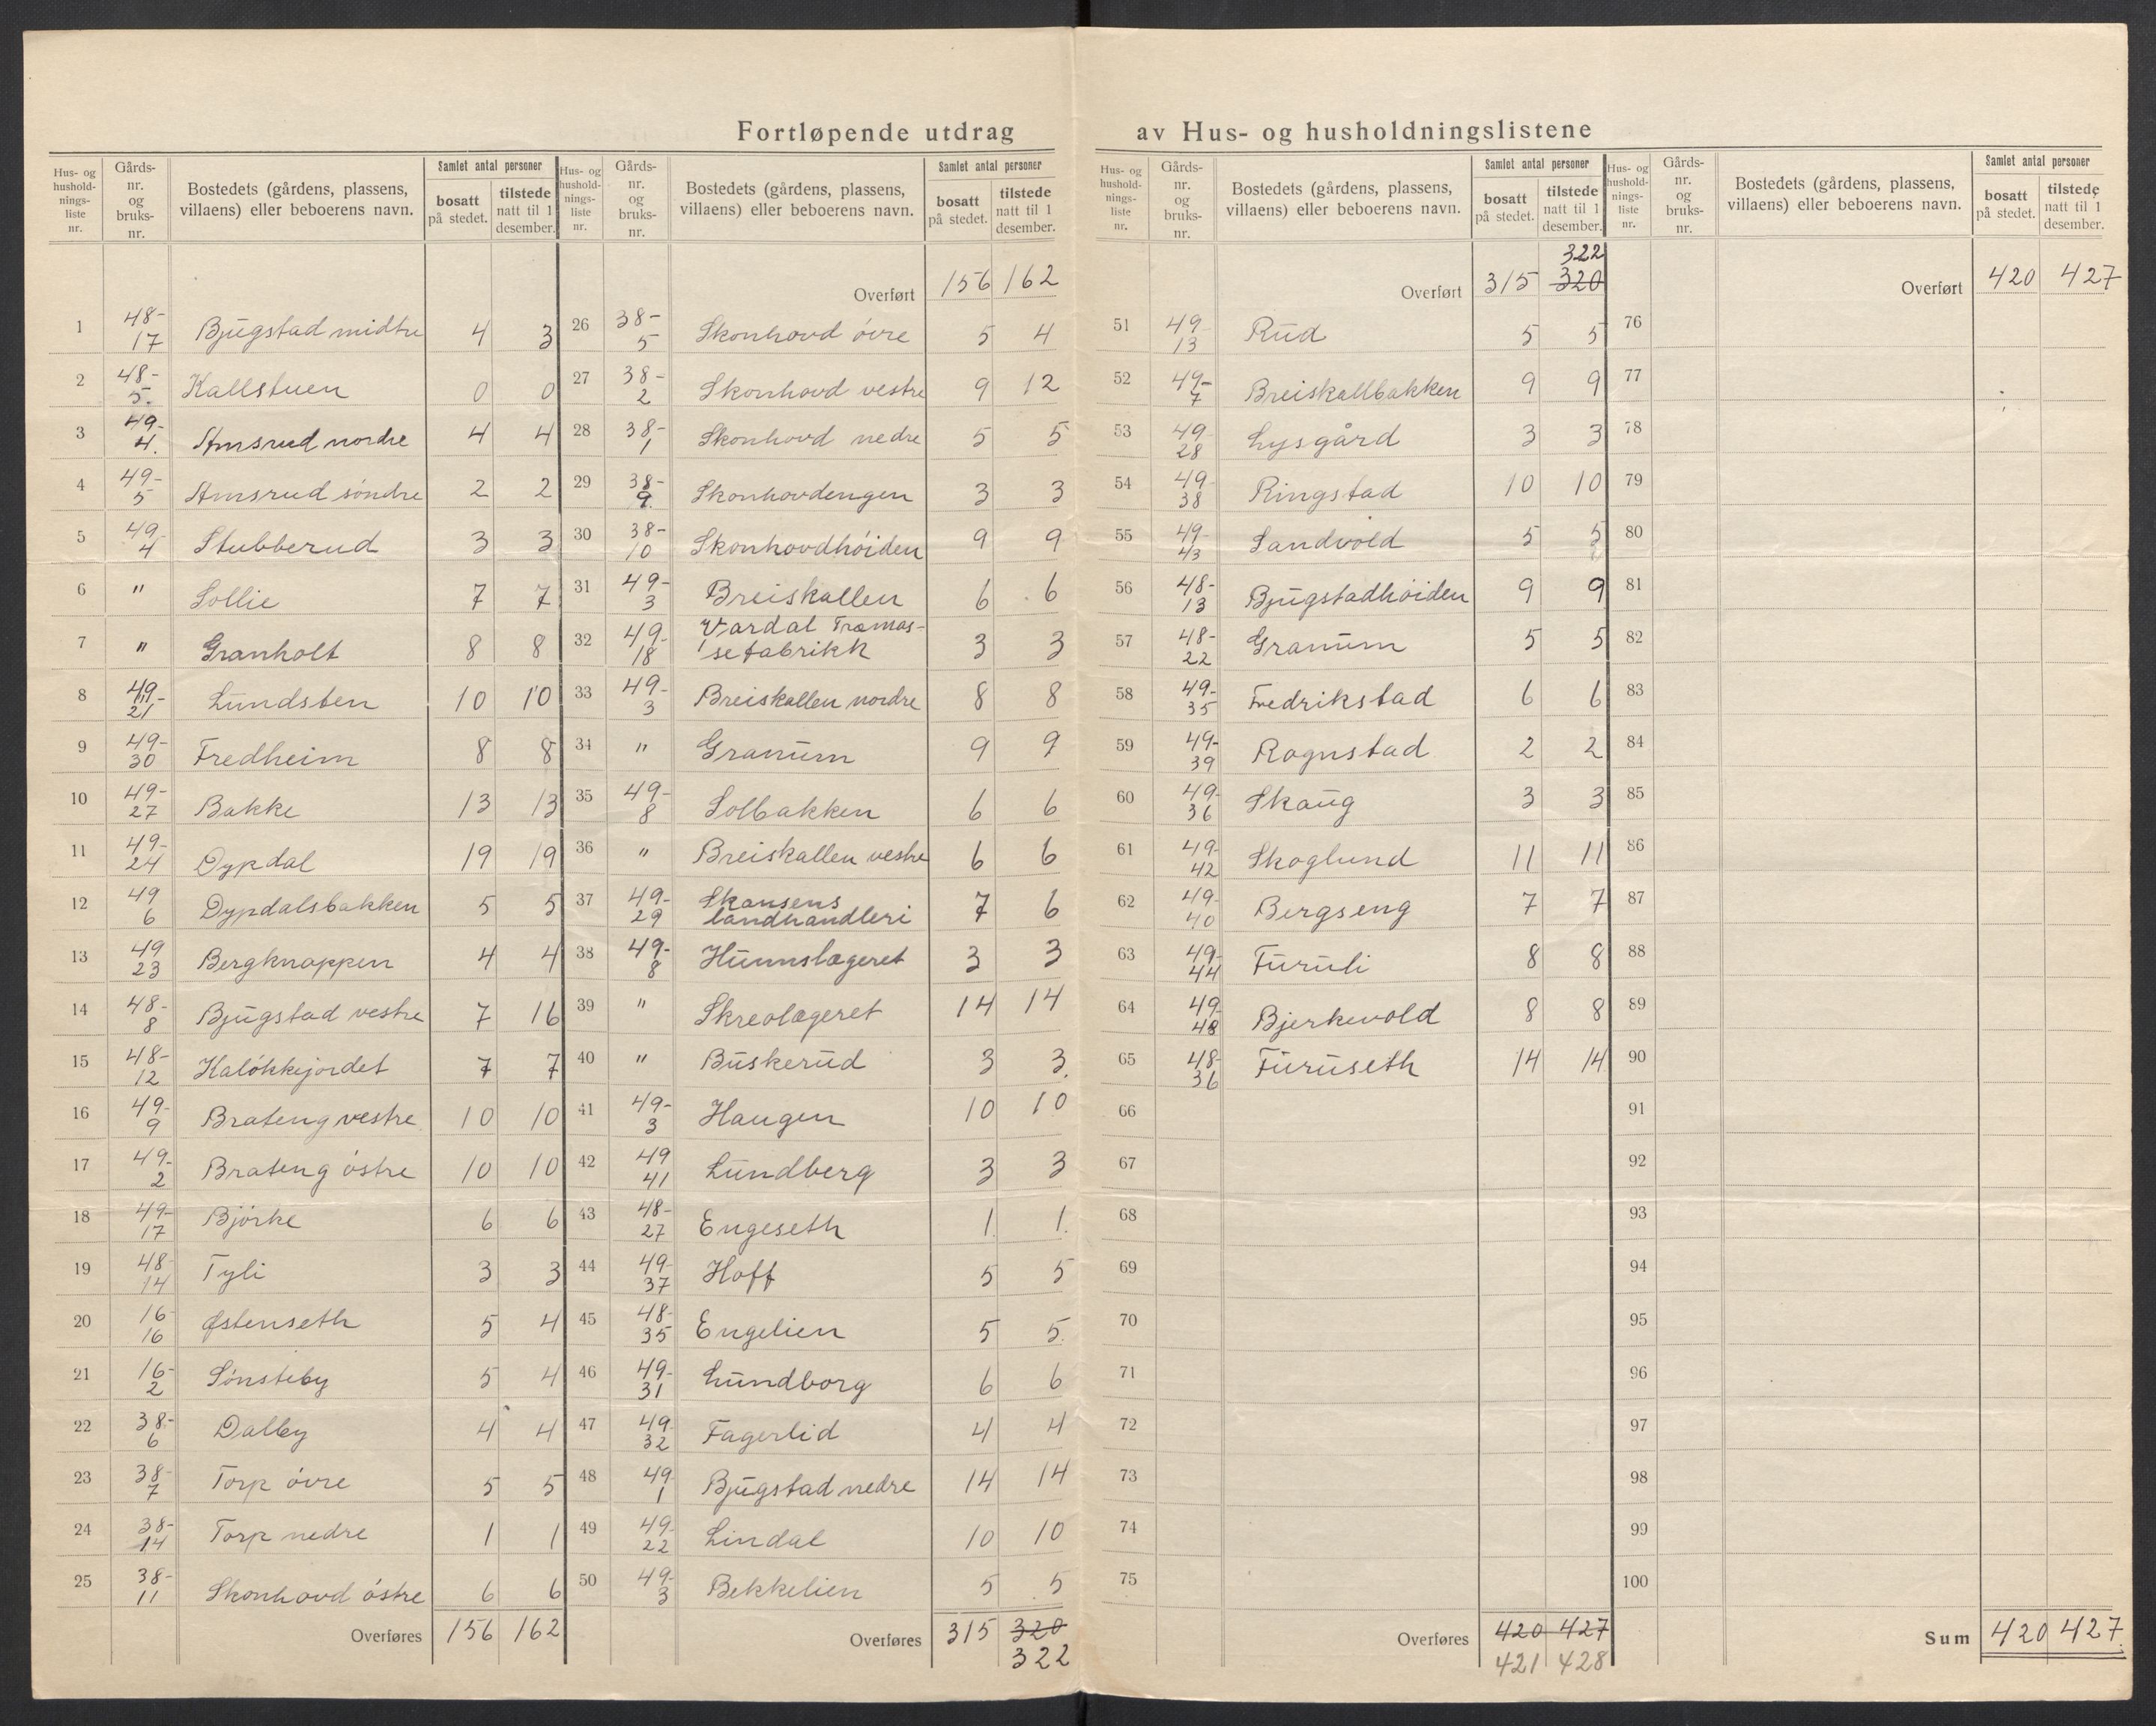 Fortløpende utdrag av Hus- og husholdningslistene
Hus- og hushold-nings-liste nr. Gårds-nr. og bruks-nr. Bostedets (gårdens, plassens, villaens) eller beboerens navn. Samlet antal personer bosatt på stedet. tilstede natt til 1 desember.
1 48-17 Bjugstad midtre 4 3
2 48-5. Kallstuen 0 0
3 49-4. Amsrud nordre 4 4
4 49-5 Amsrud söndre 2 2
5 49-4 Stubberud 3 3
6 " Sollie 7 7
7 " Granholt 8 8
8 49-21 Lundsten 10 10
9 49-30 Fredheim 8 8
10 49-27 Bakke 13 13
11 49-24 Dypdal 19 19
12 49 6 Dypdalsbakken 5 5
13 49 23 Bergknappen 4 4
14 48-8 Bjugstad vestre 7 16
15 48-12 Kalökkejordet 7 7
16 49-9 Brateng vestre 10 10
17 49-2 Brateng östre 10 10
18 49-17 Björke 6 6
19 48-14 Tyli 3 3
20 16-16 Østenseth 5 4
21 16-2 Sönsteby 5 4
22 38-6 Dalby 4 4
23 38-7 Torp övre 5 5
24 38-14 Torp nedre 1 1
25 38-11 Skonhovd östre 6 6
Overføres 156 162
Hus- og hushold-nings-liste nr. Gårds-nr. og bruks-nr. Bostedets (gårdens, plassens, villaens) eller beboerens navn. Samlet antal personer bosatt på stedet. tilstede natt til 1 desember.
Overført 156 162
26 38-5 Skonhovd övre 5 4
27 38-2 Skonhovd vestre 9 12
28 38-1 Skonhovd nedre 5 5
29 38-9. Skonhovdengen 3 3
30 38-10 Skonhovdhöiden 9 9
31 49-3 Breiskallen 6 6
32 49-18 Vardal Tramas-
sefabrikk 3 3
33 49-3 Breiskallen nordre 8 8
34 " Granum 9 9
35 49-8 Solbakken 6 6
36 " Breiskallen vestre 6 6
37 49-29 Skansens
landhandleri 7 6
38 49-8 Hunnslægeret 3 3
39 " Skreolægeret 14 14
40 " Buskerud 3 3.
41 49-3 Haugen 10 10
42 49 41 Lundberg 3 3
43 48-27 Engeseth 1 1.
44 49-37 Hoff 5 5
45 48-35 Engelien 5 5.
46 49-31 Lundborg 6 6
47 49-32 Fagerlid 4 4
48 49-1 Bjugstad nedre 14 14
49 49-22 Lindal 10 10
50 49-3 Bekkelien 5 5
Overføres 315 320
322
Hus- og hushold-nings-liste nr. Gårds-nr. og bruks-nr. Bostedets (gårdens, plassens, villaens) eller beboerens navn. Samlet antal personer bosatt på stedet. tilstede natt til 1 desember.
322
Overført 315 320
51 49 13 Rud 5 5
52 49-7 Breiskallbakken 9 9
53 49 28 Lysgård 3 3
54 49 38 Ringstad 10 10
55 49-43 Sandvold 5 5
56 48-13 Bjugstadhöiden 9 9
57 48-22 Granum 5 5
58 49-35 Fredrikstad 6 6
59 49-39 Rognstad 2 2
60 49-36 Skaug 3 3
61 49-42 Skoglund 11 11
62 49-40 Bergseng 7 7
63 49-44 Furuli 8 8
64 49-48 Bjerkevold 8 8
65 48-36 Furuseth 14 14
66
67
68
69
70
71
72
73
74
75
Overføres 420 427
421 428
Hus- og hushold-nings-liste nr. Gårds-nr. og bruks-nr. Bostedets (gårdens, plassens, villaens) eller beboerens navn. Samlet antal personer bosatt på stedet. tilstede natt til 1 desember.
Overført 420 427
76
77
78
79
80
81
82
83
84
85
86
87
88
89
90
91
92
93
94
95
96
97
98
99
100
Sum 420 427.